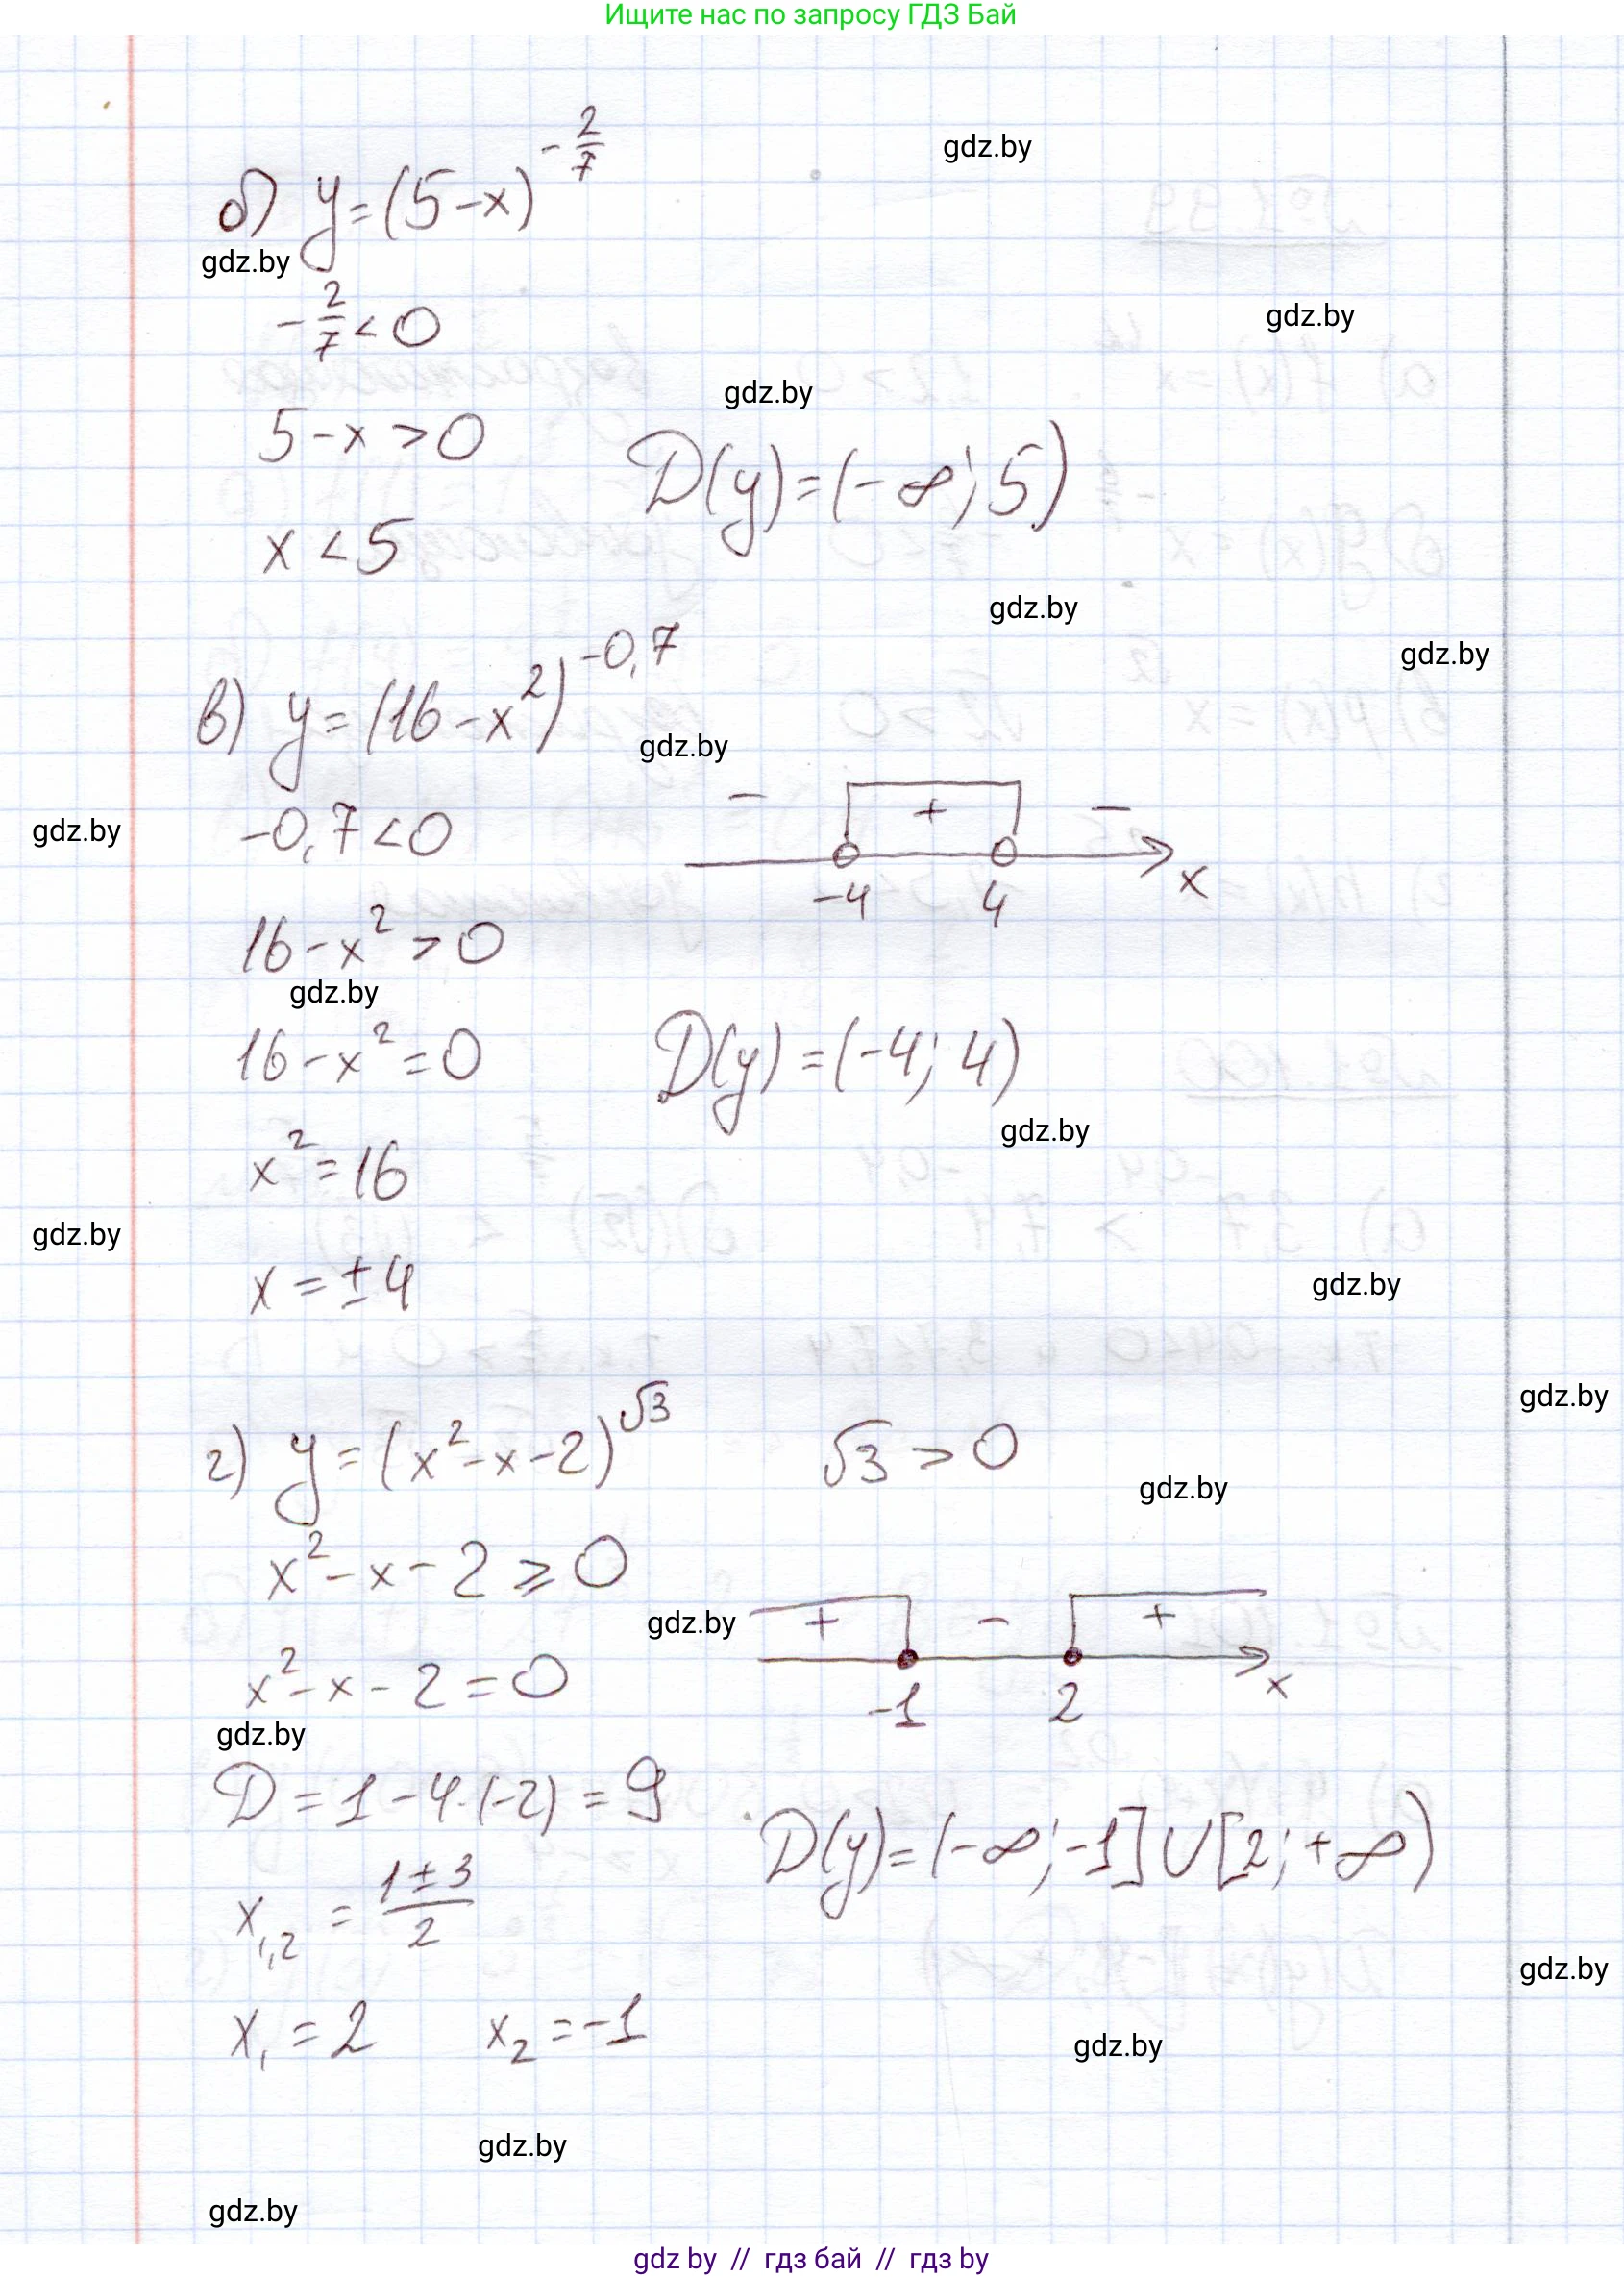 Ищите нас по запросу ГДЗ Бай
б) y=(5-x)^{-2/7}
gdz.by
gdz.by
-2/7<0
gdz.by
gdz.by
5-x>0
D(y)=(-∞; 5)
x<5
gdz.by
gdz.by
в) y=(16-x²)^{-0,7}
gdz.by
- + -
-0,7<0
gdz.by
-4 4 x
16-x²>0
gdz.by
16-x²=0
D(y)=(-4; 4)
gdz.by
x²=16
gdz.by
x=±4
gdz.by
gdz.by
г) y=(x²-x-2)^{√3}
√3>0
gdz.by
x²-x-2⩾0
gdz.by
+ - +
x²-x-2=0
-1 2 x
gdz.by
D=1-4·(-2)=9
D(y)=(-∞;-1]∪[2;+∞)
x_{1,2}=\frac{1±3}{2}
gdz.by
x₁=2 x₂=-1
gdz.by
gdz.by
gdz.by
gdz by // гдз бай // гдз by